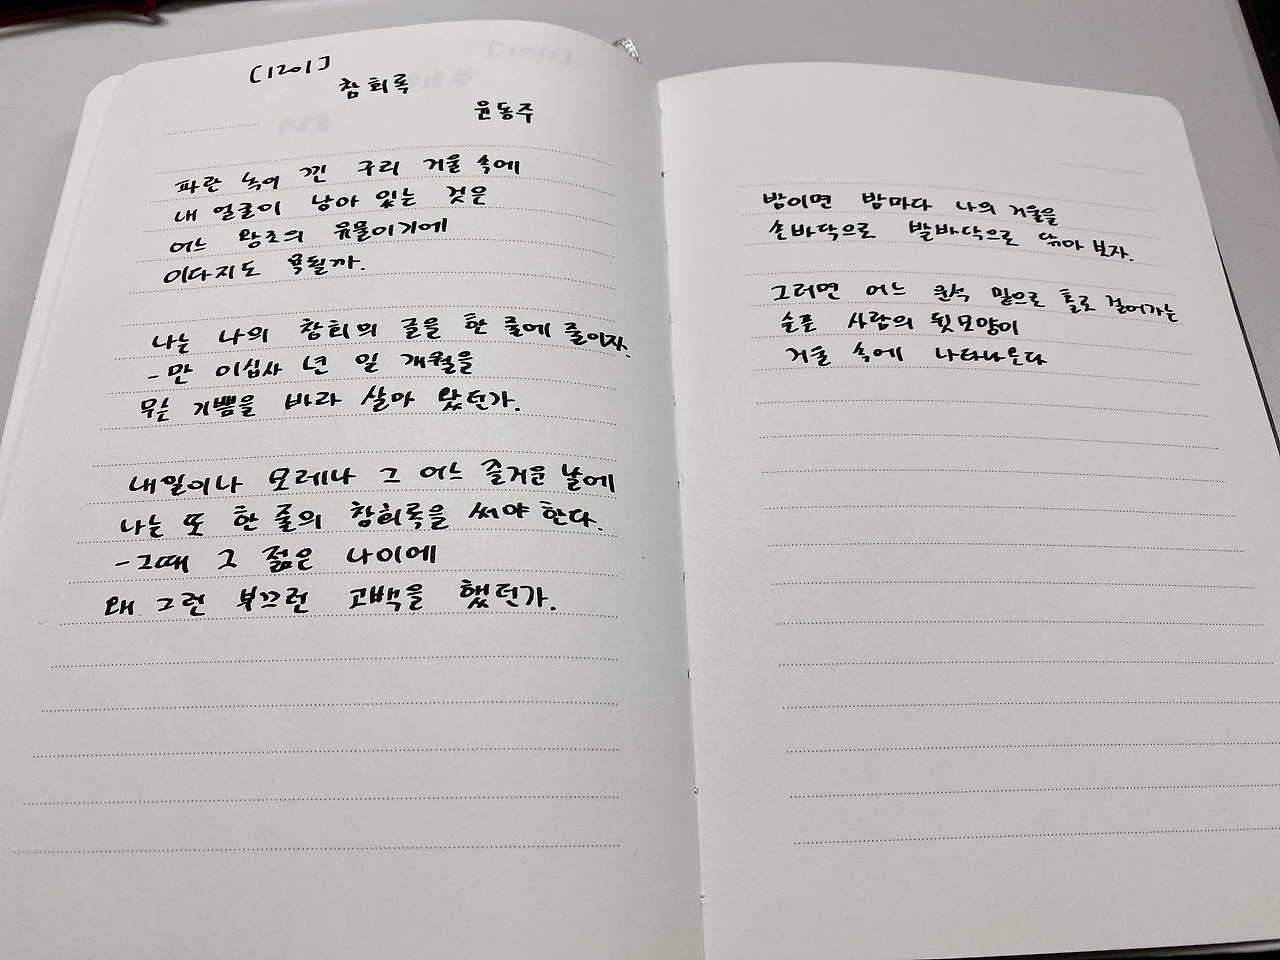 [1201]
참회록
윤동주
파란 녹이 낀 구리 거울 속에
내 얼굴이 남아 있는 것은
어느 왕조의 유물이기에
이다지도 욕될까.
나는 나의 참회의 글을 한 줄에 줄이자.
-만 이십사 년 일 개월을
무슨 기쁨을 바라 살아 왔던가.
내일이나 모레나 그 어느 즐거운 날에
나는 또 한 줄의 참회록을 써야 한다.
-그때 그 젊은 나이에
왜 그런 부끄런 고백을 했던가.
밤이면 밤마다 나의 거울을
손바닥으로 발바닥으로 닦아 보자.
그러면 어느 운석 밑으로 홀로 걸어가는
슬픈 사람의 뒷모양이
거울 속에 나타나온다